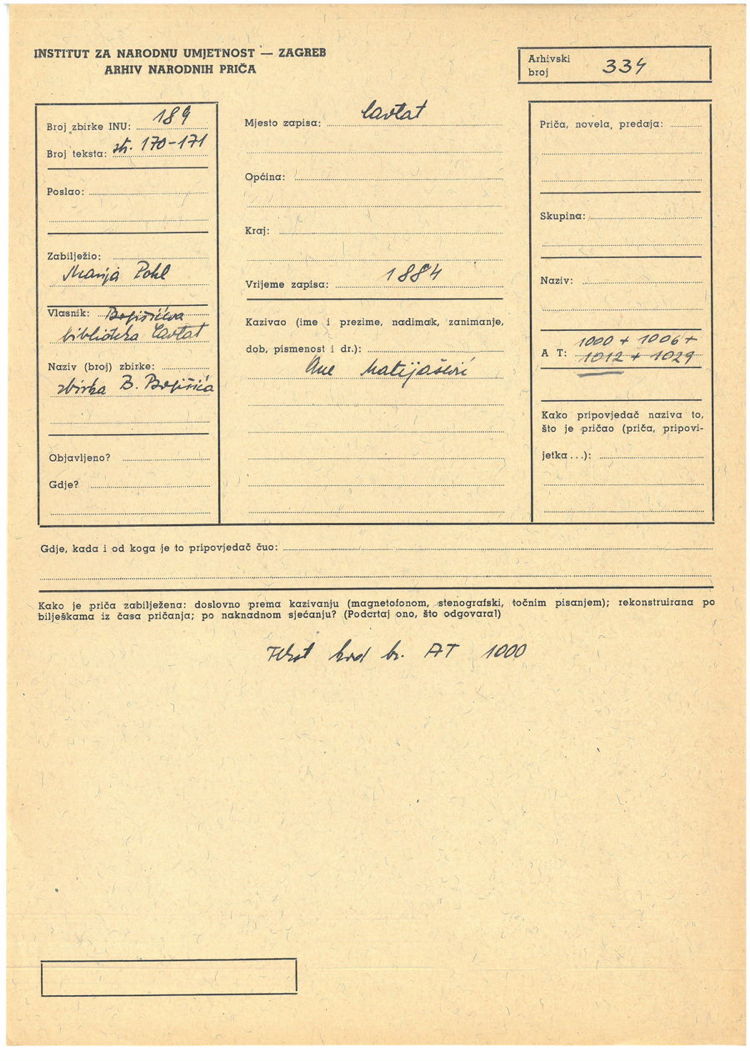 INSTITUT ZA NARODNU UMJETNOST — ZAGREB
ARHIV NARODNIH PRIČA
Arhivski
broj 334
Broj zbirke INU: 189
Broj teksta: str. 170-171
Poslao:
Zabilježio:
Marija Pohl
Vlasnik: Bogišićeva
biblioteka Cavtat
Naziv (broj) zbirke:
zbirka B. Bogišića
Objavljeno?
Gdje?
Mjesto zapisa: Cavtat
Općina:
Kraj:
Vrijeme zapisa: 1884
Kazivao (ime i prezime, nadimak, zanimanje,
dob, pismenost i dr.):
Ane Matijašević
Priča, novela, predaja:
Skupina:
Naziv:
1000 + 1006 +
A T: 1012 + 1029
Kako pripovjedač naziva to,
što je pričao (priča, pripovi-
jetka...):
Gdje, kada i od koga je to pripovjedač čuo:
Kako je priča zabilježena: doslovno prema kazivanju (magnetofonom, stenografski, točnim pisanjem); rekonstruirana po
bilješkama iz časa pričanja; po naknadnom sjećanju? (Podcrtaj ono, što odgovara!)
Tekst kod br. AT 1000